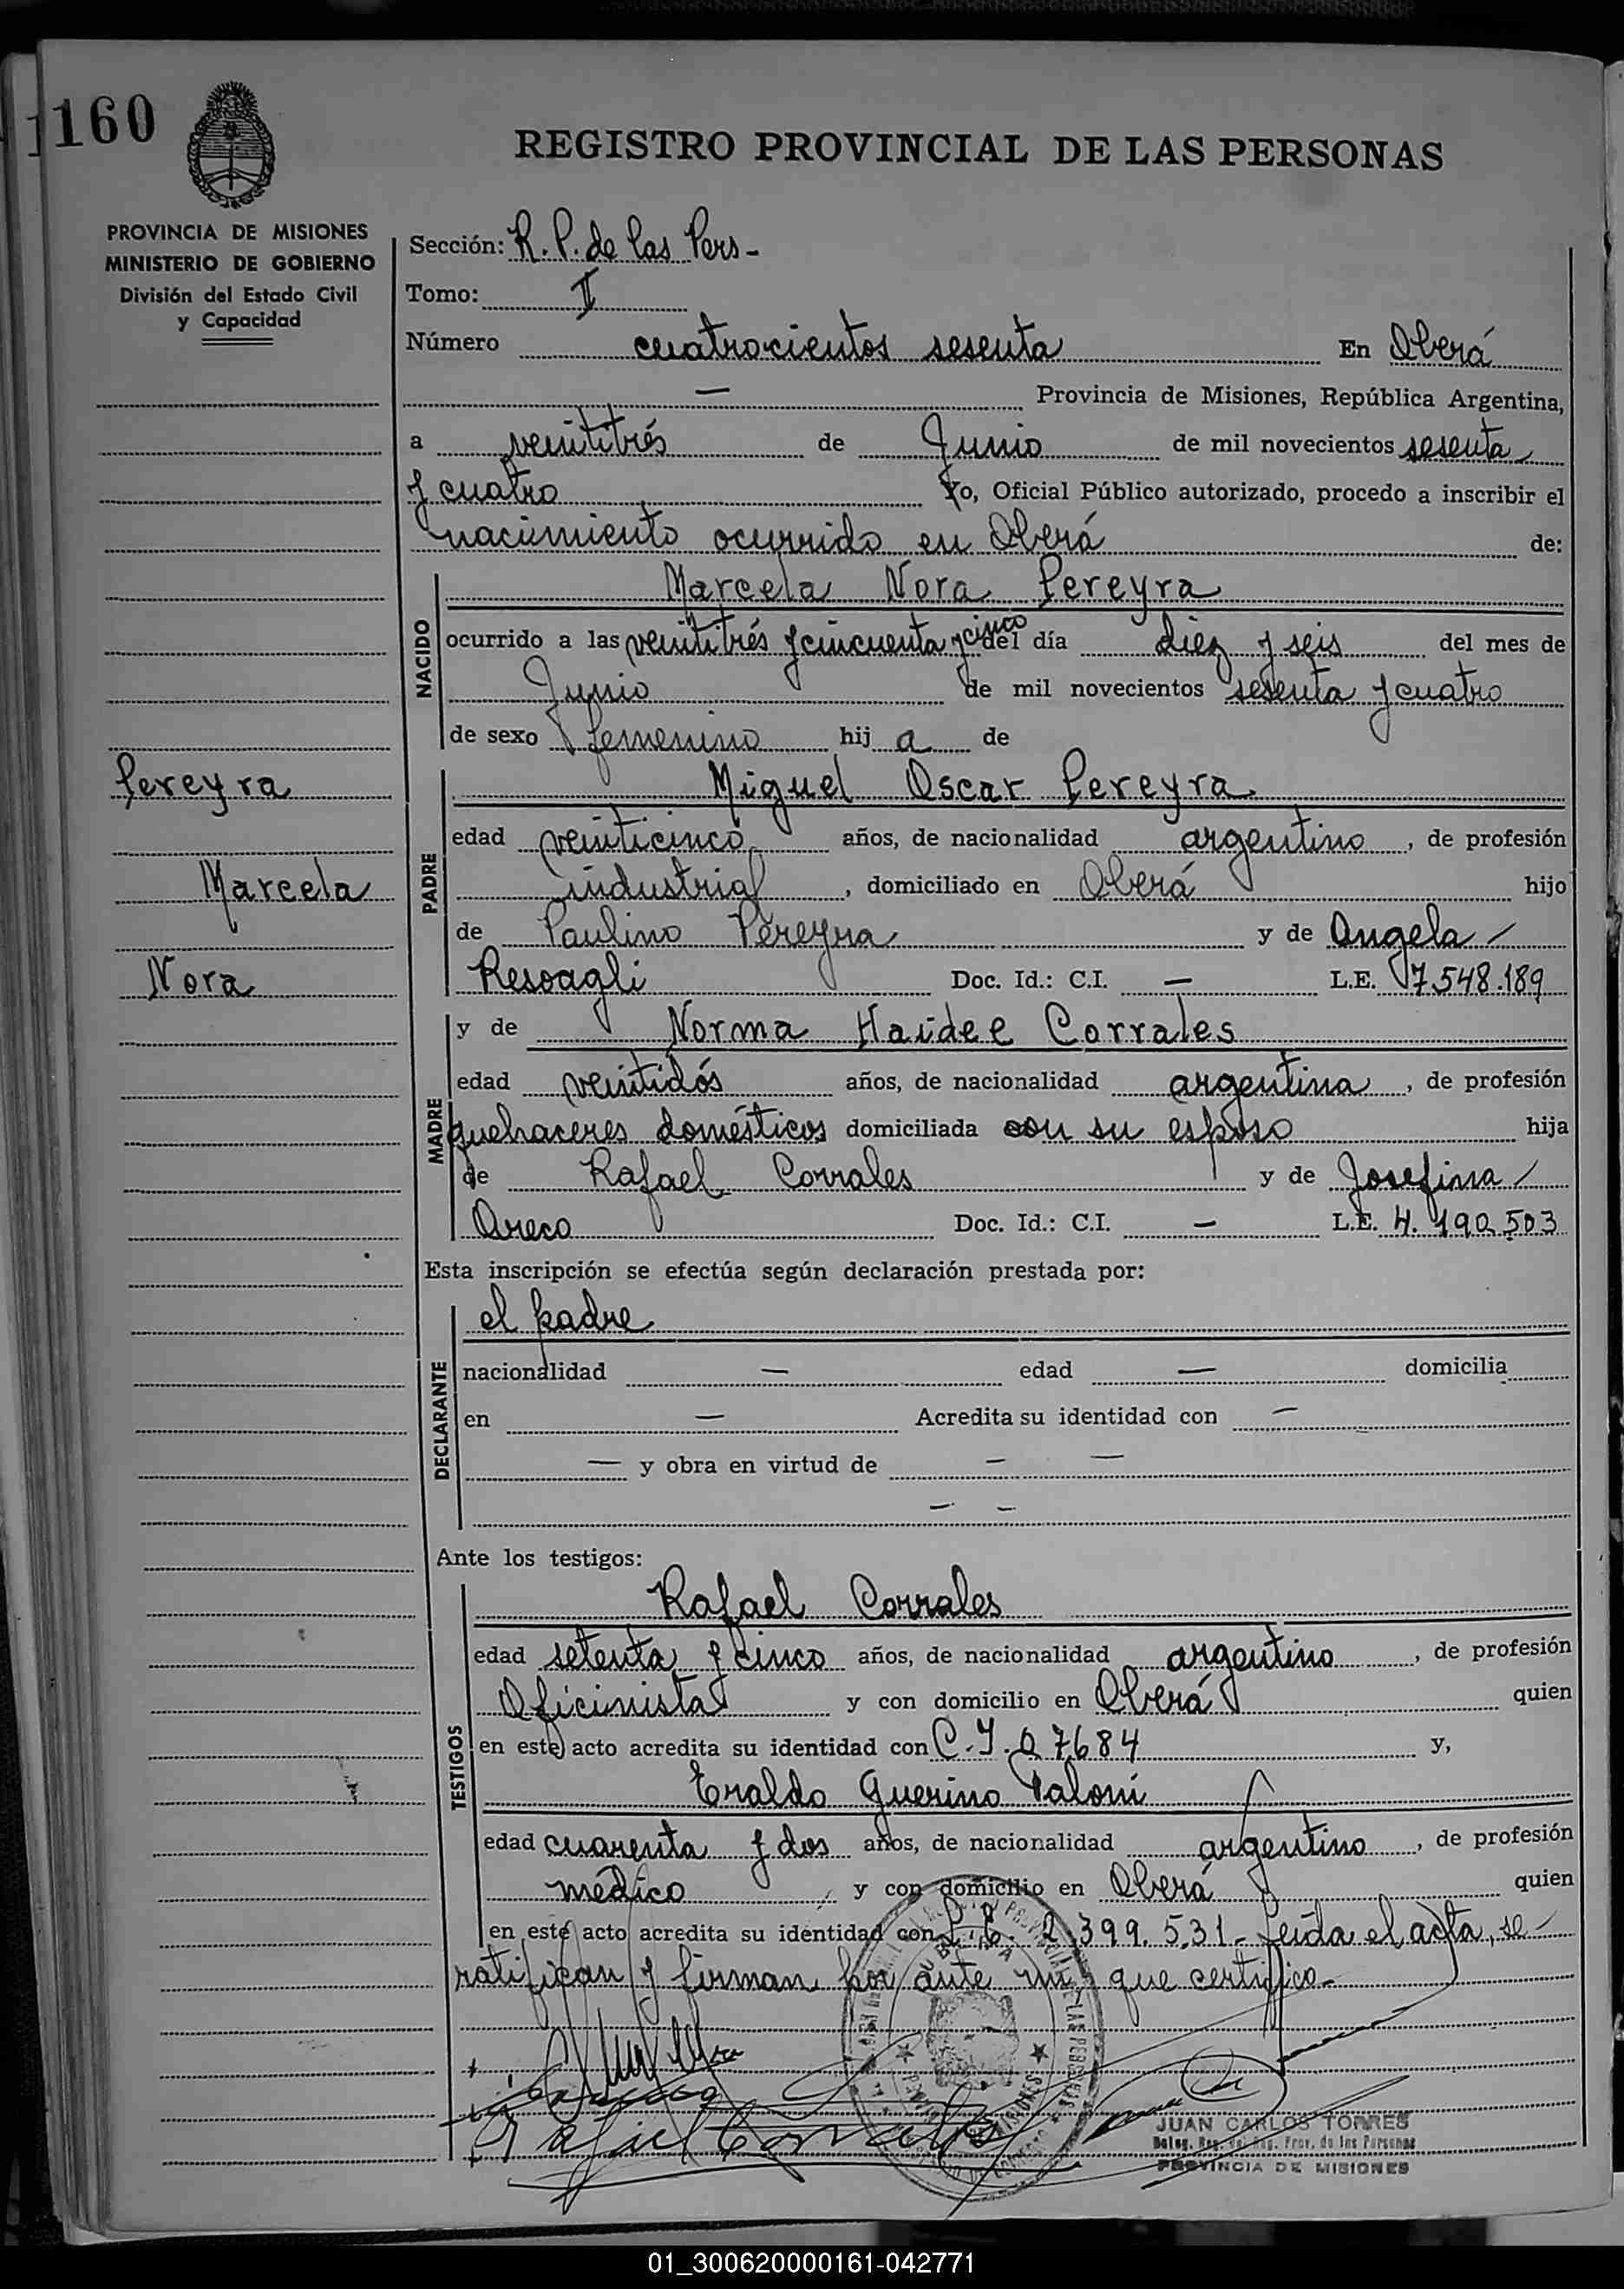 160
REGISTRO PROVINCIAL DE LAS PERSONAS
PROVINCIA DE MISIONES
MINISTERIO DE GOBIERNO
División del Estado Civil
y Capacidad
Sección: R. P. de las Pers-
Tomo: II
Número cuatrocientos sesenta En Oberá
— Provincia de Misiones, República Argentina,
a veintitrés de Junio de mil novecientos sesenta
y cuatro Yo, Oficial Público autorizado, procedo a inscribir el
nacimiento ocurrido en Oberá de:
NACIDO
Marcela Nora Pereyra
ocurrido a las veintitrés y cincuenta y cinco del día diez y seis del mes de
Junio de mil novecientos sesenta y cuatro
de sexo femenino hij a de
Pereyra
Marcela
Nora
PADRE
Miguel Oscar Pereyra
edad veinticinco años, de nacionalidad argentino, de profesión
industrial, domiciliado en Oberá hijo
de Paulino Pereyra y de Angela
Resoagli Doc. Id.: C.I. — L.E. 7.548.189
MADRE
y de Norma Haidee Corrales
edad veintidós años, de nacionalidad argentina, de profesión
quehaceres domésticos domiciliada con su esposo hija
de Rafael Corrales y de Josefina
Areco Doc. Id.: C.I. — L.E. 4.190.503
Esta inscripción se efectúa según declaración prestada por:
DECLARANTE
el padre
nacionalidad — edad — domicilia
en — Acredita su identidad con —
— y obra en virtud de — —
— —
Ante los testigos:
TESTIGOS
Rafael Corrales
edad setenta y cinco años, de nacionalidad argentino, de profesión
Oficinista y con domicilio en Oberá quien
en este acto acredita su identidad con C.I. 07684 y,
Eraldo Guerino Paloni
edad cuarenta y dos años, de nacionalidad argentino, de profesión
médico y con domicilio en Oberá quien
en este acto acredita su identidad con L.E. 2.399.531- Leída el acta, se
ratifican y firman por ante mi que certifico.-
Rafael Corrales
JUAN CARLOS TORRES
Deleg. Reg. del Reg. Prov. de las Personas
PROVINCIA DE MISIONES
01_300620000161-042771